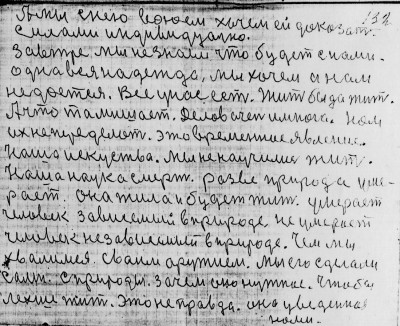 А мы с него воюем хочем ей доказат. 132
Силами индивидуалко.
Завтре. мы незнаем что будет с нами.
одна вся надежда, мы хочем а нам
недается. Все у нас ест. Жит бы да жит.
А что та мишает. Деловачен им нога. Нам
их непеределат. Это временное явление.
Наша искуства. Мы ненаучимса жит.
Наша наука смерт. разве природа уме-
рает. она жила и будет жит. умерает
человек зависимый вприроде. не умерает
человек независимый вприроде. Чем мы
хвалимся. Своим оружием. мы его сделали
сами. с природы. зачем оно нужное. Чтобы
легше жит. Это не правда. она уведенная
нами.